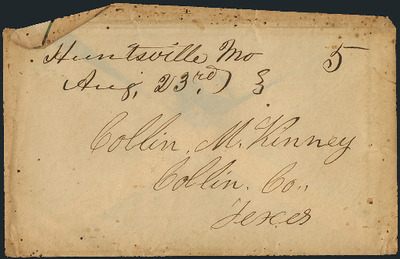 Huntsville Mo 5
Aug, 23rd.) }
Collin. McKinney
Collin. Co.,
Texes